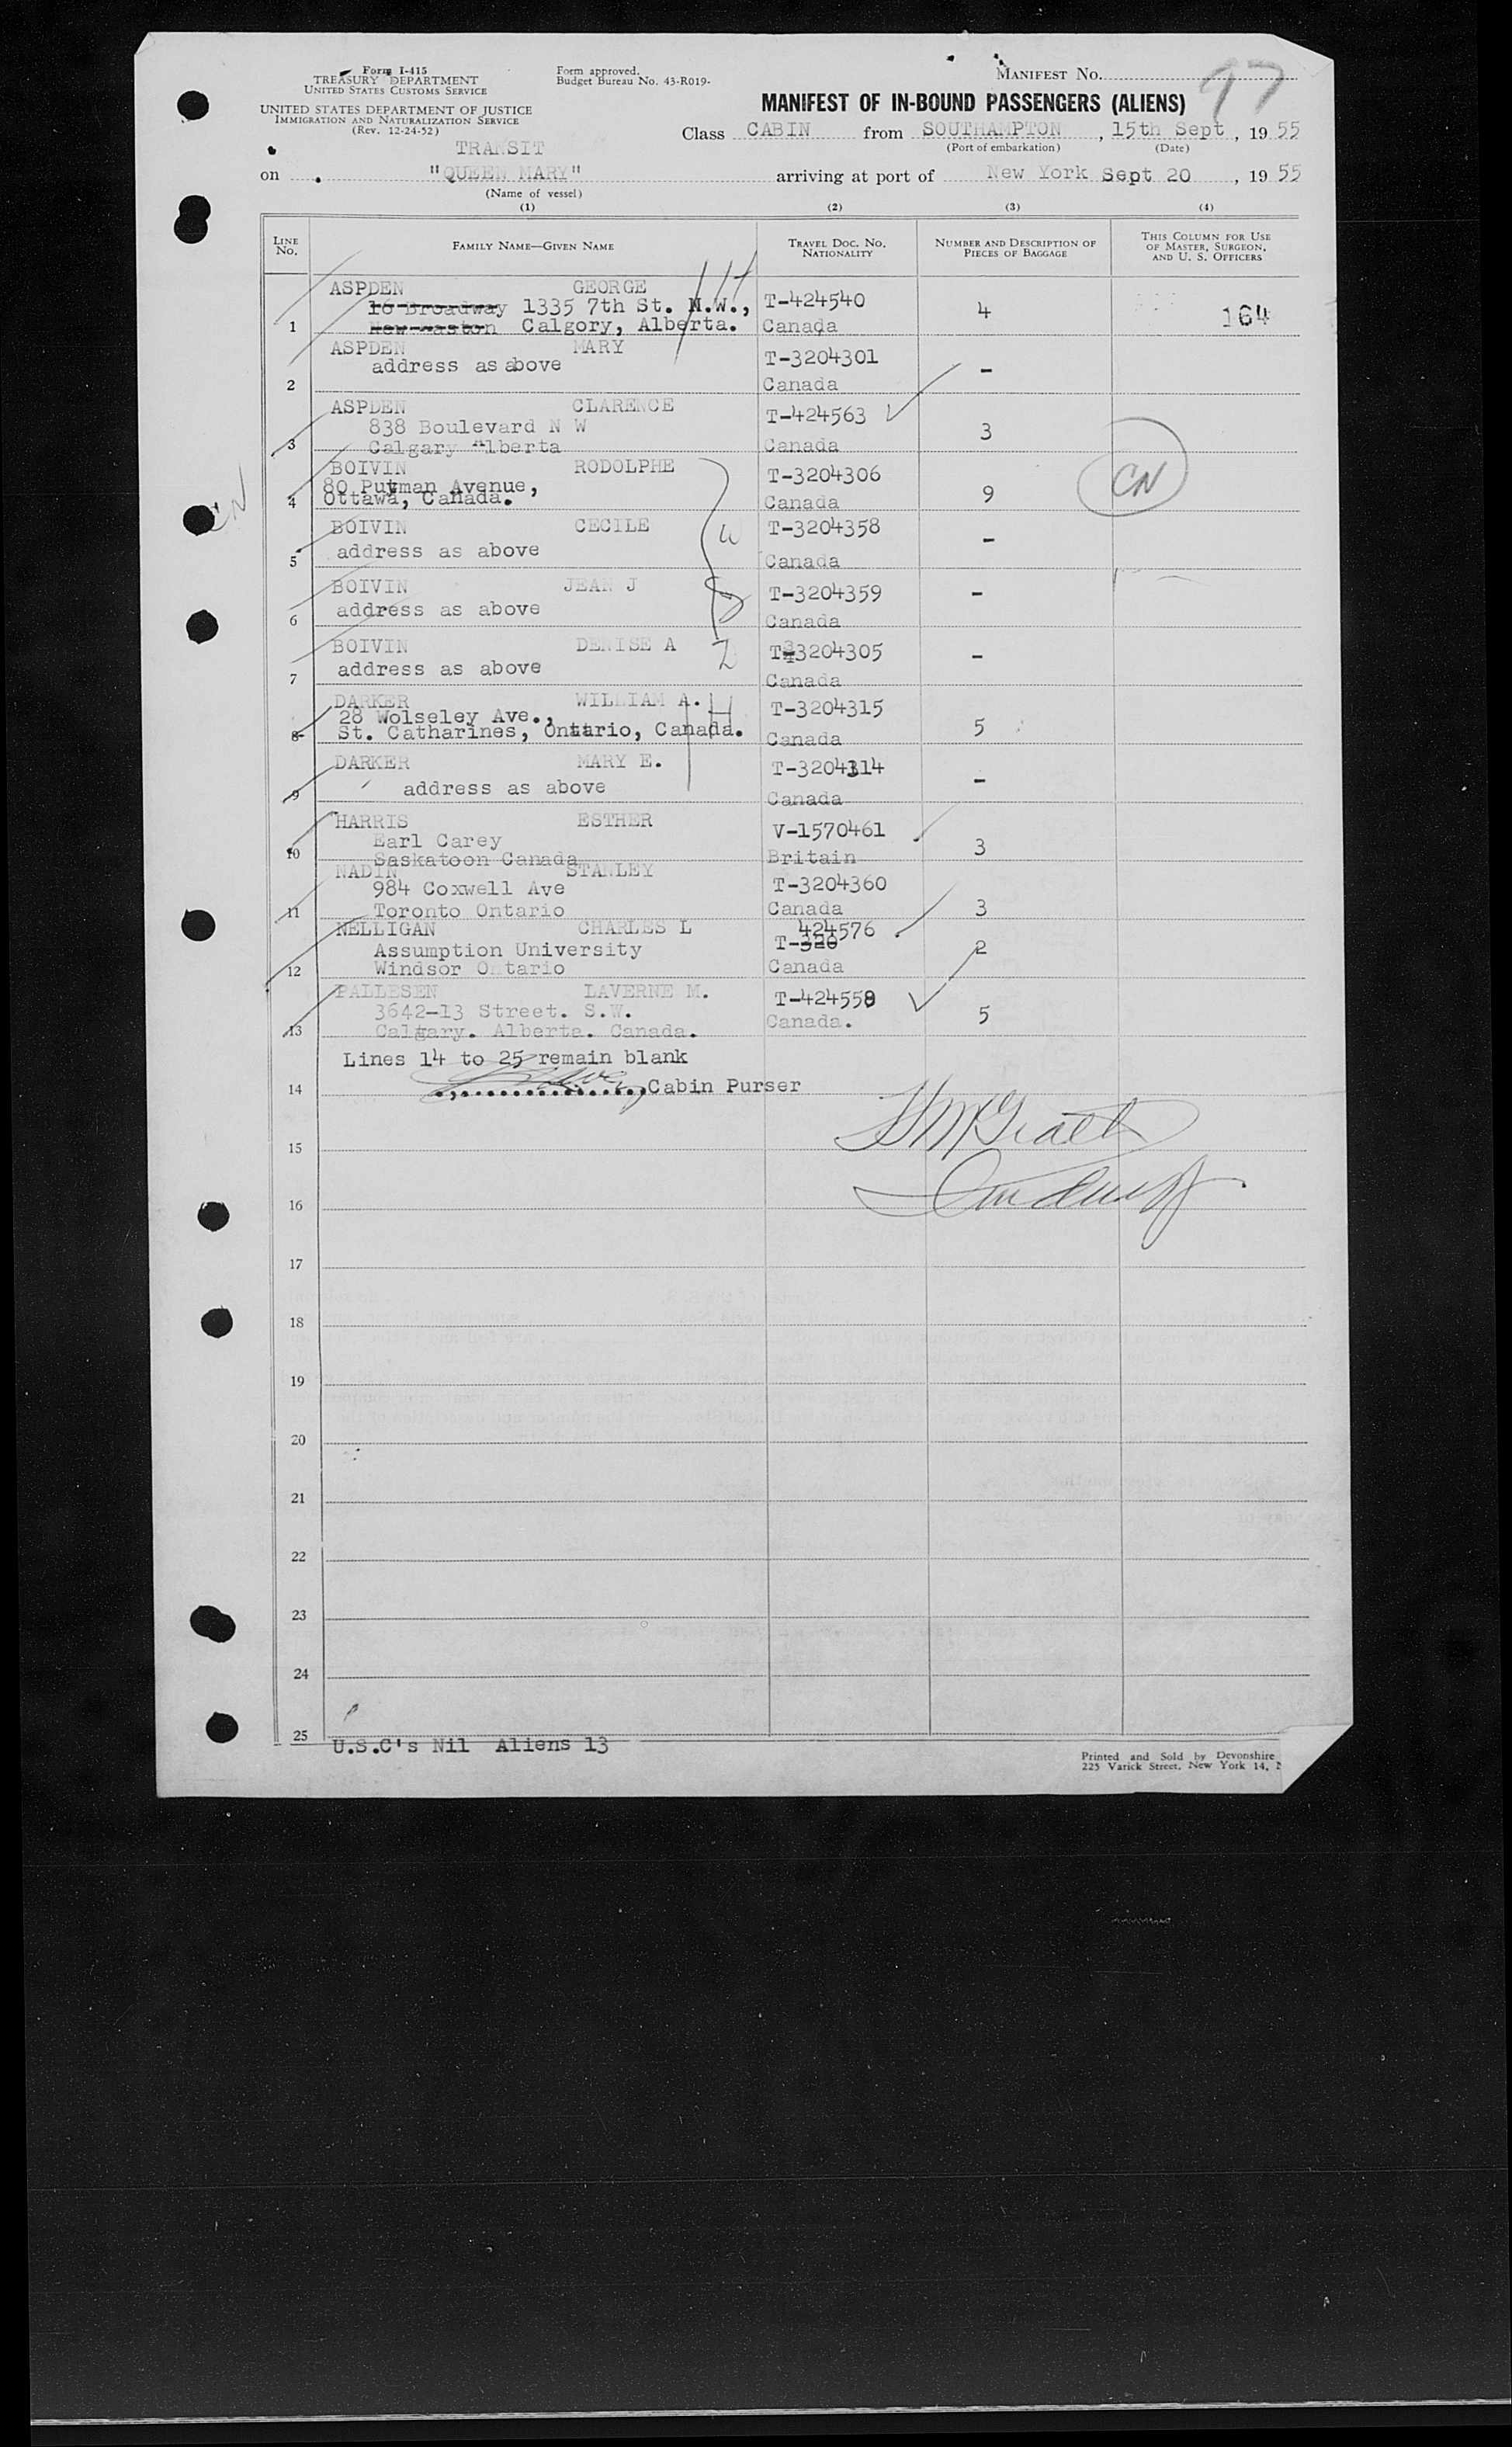 Form I-415
TREASURY DEPARTMENT
UNITED STATES CUSTOMS SERVICE
UNITED STATES DEPARTMENT OF JUSTICE
IMMIGRATION AND NATURALIZATION SERVICE
(Rev. 12-24-52)
Form approved.
Budget Bureau No. 43-R019-
MANIFEST NO. 97
MANIFEST OF IN-BOUND PASSENGERS (ALIENS)
Class CABIN from SOUTHAMPTON, 15th Sept, 19 55
(Port of embarkation) (Date)
TRANSIT
on "QUEEN MARY" arriving at port of New York Sept 20, 19 55
(Name of vessel)
(1) (2) (3) (4)
LINE NO. FAMILY NAME—GIVEN NAME TRAVEL DOC. NO. NATIONALITY NUMBER AND DESCRIPTION OF PIECES OF BAGGAGE THIS COLUMN FOR USE OF MASTER, SURGEON, AND U. S. OFFICERS
ASPDEN GEORGE
16 Broadway 1335 7th St. N.W., T-424540 4 164
1 Calgory, Alberta. Canada
ASPDEN MARY T-3204301
address as above -
2 Canada
ASPDEN CLARENCE T-424563
838 Boulevard N W 3
3 Calgary Alberta Canada
BOIVIN RODOLPHE T-3204306 CN
80 Putman Avenue, 9
4 Ottawa, Canada. Canada
CN
BOIVIN CECILE W T-3204358
address as above -
5 Canada
BOIVIN JEAN J S T-3204359 -
address as above
6 Canada
BOIVIN DENISE A D T-3204305 -
address as above
7 Canada
DARKER WILLIAM A. H T-3204315
28 Wolseley Ave., 5
8 St. Catharines, Ontario, Canada. Canada
DARKER MARY E. T-3204314
address as above -
9 Canada
HARRIS ESTHER V-1570461
Earl Carey 3
10 Saskatoon Canada Britain
NADIN STANLEY T-3204360
984 Coxwell Ave
11 Toronto Ontario Canada 3
NELLIGAN CHARLES L 424576
Assumption University T-320 2
12 Windsor Ontario Canada
PALLESEN LAVERNE M. T-424558
3642-13 Street. S.W. 5
13 Calgary. Alberta. Canada. Canada.
Lines 14 to 25 remain blank
14 Cabin Purser
H McGrath
15
16
17
18
19
20
21
22
23
24
25
U.S.C's Nil Aliens 13
Printed and Sold by Devonshire
225 Varick Street, New York 14,